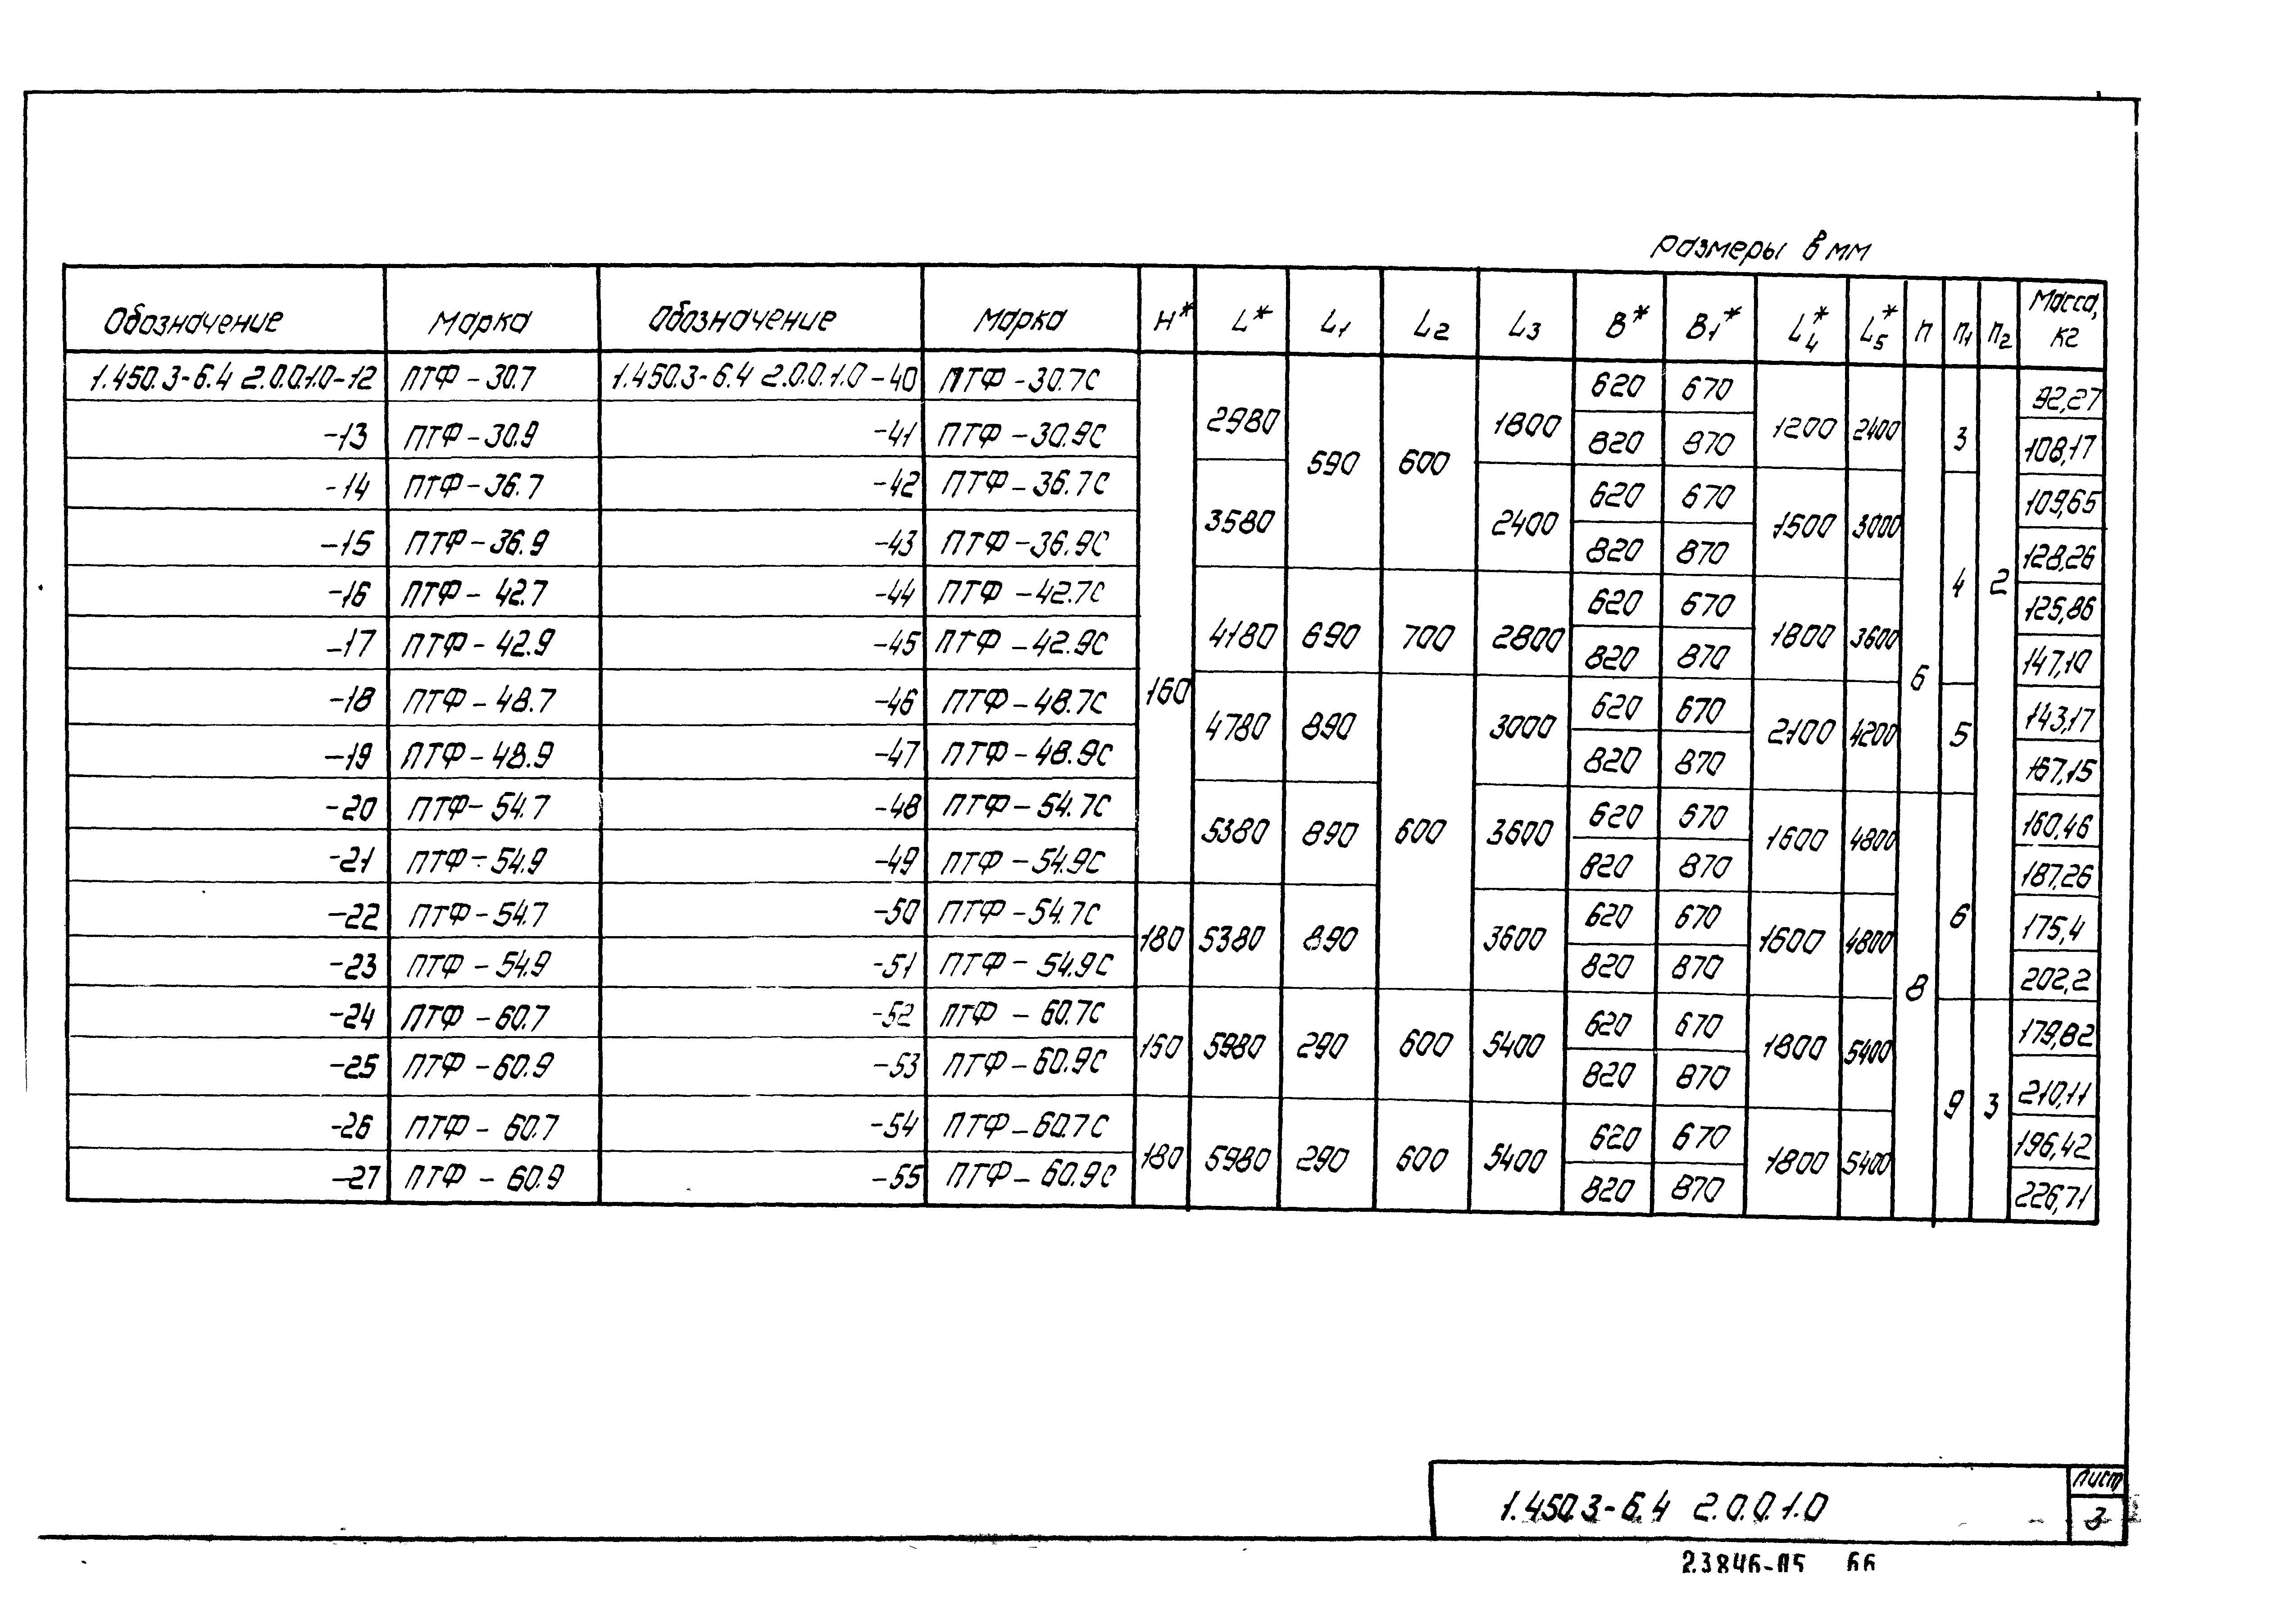 размеры в мм
Обозначение Марка Обозначение Марка H* L* L1 L2 L3 B* B1* L4* L5* n n1 n2 Масса, кг
1.450.3-6.4 2.0.0.1.0-12 ПТФ-30.7 1.450.3-6.4 2.0.0.1.0-40 ПТФ-30.7С 160 2980 590 600 1800 620 670 1200 2400 6 3 2 92,27
-13 ПТФ-30.9 -41 ПТФ-30.9С 820 870 108,17
-14 ПТФ-36.7 -42 ПТФ-36.7С 3580 2400 620 670 1500 3000 4 109,65
-15 ПТФ-36.9 -43 ПТФ-36.9С 820 870 128,26
-16 ПТФ-42.7 -44 ПТФ-42.7С 4180 690 700 2800 620 670 1800 3600 125,86
-17 ПТФ-42.9 -45 ПТФ-42.9С 820 870 147,10
-18 ПТФ-48.7 -46 ПТФ-48.7С 4780 890 600 3000 620 670 2100 4200 5 143,17
-19 ПТФ-48.9 -47 ПТФ-48.9С 820 870 167,15
-20 ПТФ-54.7 -48 ПТФ-54.7С 5380 890 3600 620 670 1600 4800 8 6 160,46
-21 ПТФ-54.9 -49 ПТФ-54.9С 820 870 187,26
-22 ПТФ-54.7 -50 ПТФ-54.7С 180 5380 890 3600 620 670 1600 4800 175,4
-23 ПТФ-54.9 -51 ПТФ-54.9С 820 870 202,2
-24 ПТФ-60.7 -52 ПТФ-60.7С 160 5980 290 600 5400 620 670 1800 5400 9 3 179,82
-25 ПТФ-60.9 -53 ПТФ-60.9С 820 870 210,11
-26 ПТФ-60.7 -54 ПТФ-60.7С 180 5980 290 600 5400 620 670 1800 5400 196,42
-27 ПТФ-60.9 -55 ПТФ-60.9С 820 870 226,71
1.450.3-6.4 2.0.0.1.0
Лист
3
23846-05 66